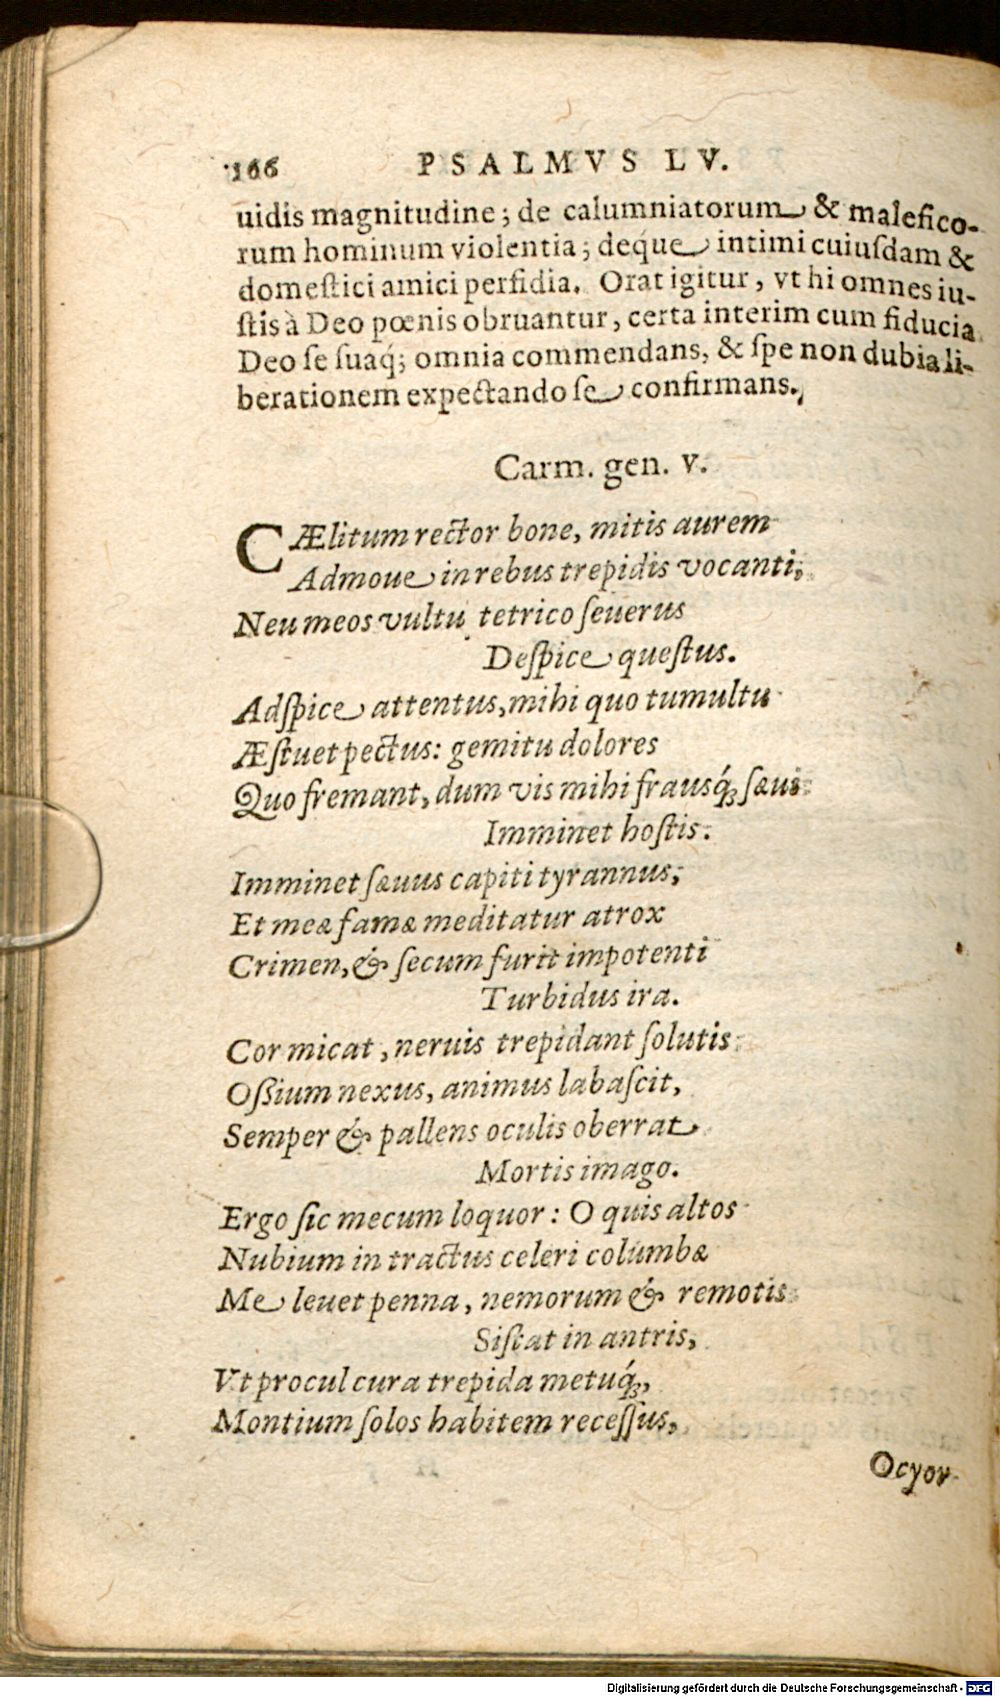 166 PSALMVS LV.
uidis magnitudine; de calumniatorum & malefico-
rum hominum violentia; deque intimi cuiuſdam &
domeſtici amici perfidia. Orat igitur, vt hi omnes iu-
ſtis à Deo pœnis obruantur, certa interim cum fiducia
Deo ſe ſuaq́; omnia commendans, & ſpe non dubia li-
berationem expectando ſe confirmans.
Carm. gen. V.
CÆlitum rector bone, mitis aurem
Admoue in rebus trepidis vocanti,
Neu meos vultu tetrico ſeuerus
Deſpice queſtus.
Adſpice attentus, mihi quo tumultu
Æſtuet pectus: gemitu dolores
Quo fremant, dum vis mihi frausq́; ſæui
Imminet hoſtis.
Imminet ſæuus capiti tyrannus;
Et meæ famæ meditatur atrox
Crimen, & ſecum furit impotenti
Turbidus ira.
Cor micat, neruis trepidant ſolutis
Oßium nexus, animus labaſcit,
Semper & pallens oculis oberrat
Mortis imago.
Ergo ſic mecum loquor: O quis altos
Nubium in tractus celeri columbæ
Me leuet penna, nemorum & remotis
Siſtat in antris,
Vt procul cura trepida metuq́;,
Montium ſolos habitem receſſus,
Ocyor
Digitalisierung gefördert durch die Deutsche Forschungsgemeinschaft - DFG